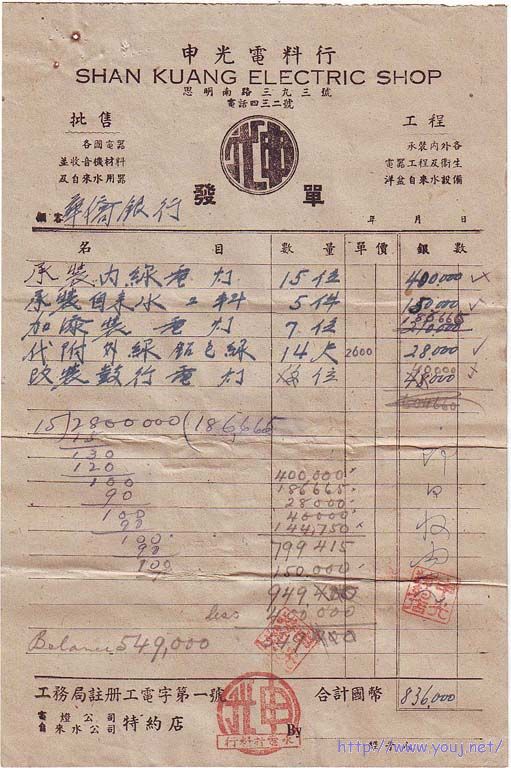 申光電料行
SHAN KUANG ELECTRIC SHOP
思明南路三九三號
電話四三二號
批售
各國電器
並收音機材料
及自來水用器
工程
承裝內外各
電器工程及衛生
洋盆自來水設備
發 單
顧客 華僑銀行 年 月 日
名 目 數量 單價 銀數
承裝內線電灯 15位 400,000
承裝自来水工料 5件 150,000
186665
加添裝電灯 7位 210,000
代附外線鉛包線 14尺 2600 28,000
40000
改裝數行電灯 位 48,000
604660
15)2800000(186665
15
130
120
100
90
100
90
100
90
100
400,000
186665
28000
40000
144,750
799415
150,000
949400
less 400,000
Balance 549,000
工務局註册工電字第一號 合計國幣 836,000
電燈公司
自來水公司 特約店
By
http://www.youj.net/